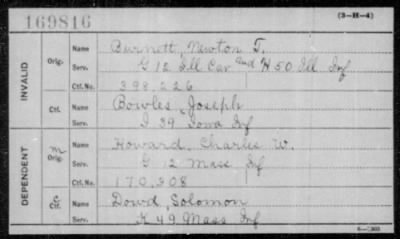 169816
(3-H-4)
INVALID
Orig. Name Burnett, Newton T.
Serv. G 12 Ill Cav and H 50 Ill Inf
Ctf. No. 398,226
Ctf. Name Bowles, Joseph
Serv. I 39 Iowa Inf
DEPENDENT
M Orig. Name Howard, Charles W.
Serv. G 12 Mass Inf
Ctf. No. 170,308
C Ctf. Name Dowd, Solomon
Serv. K 49 Mass Inf